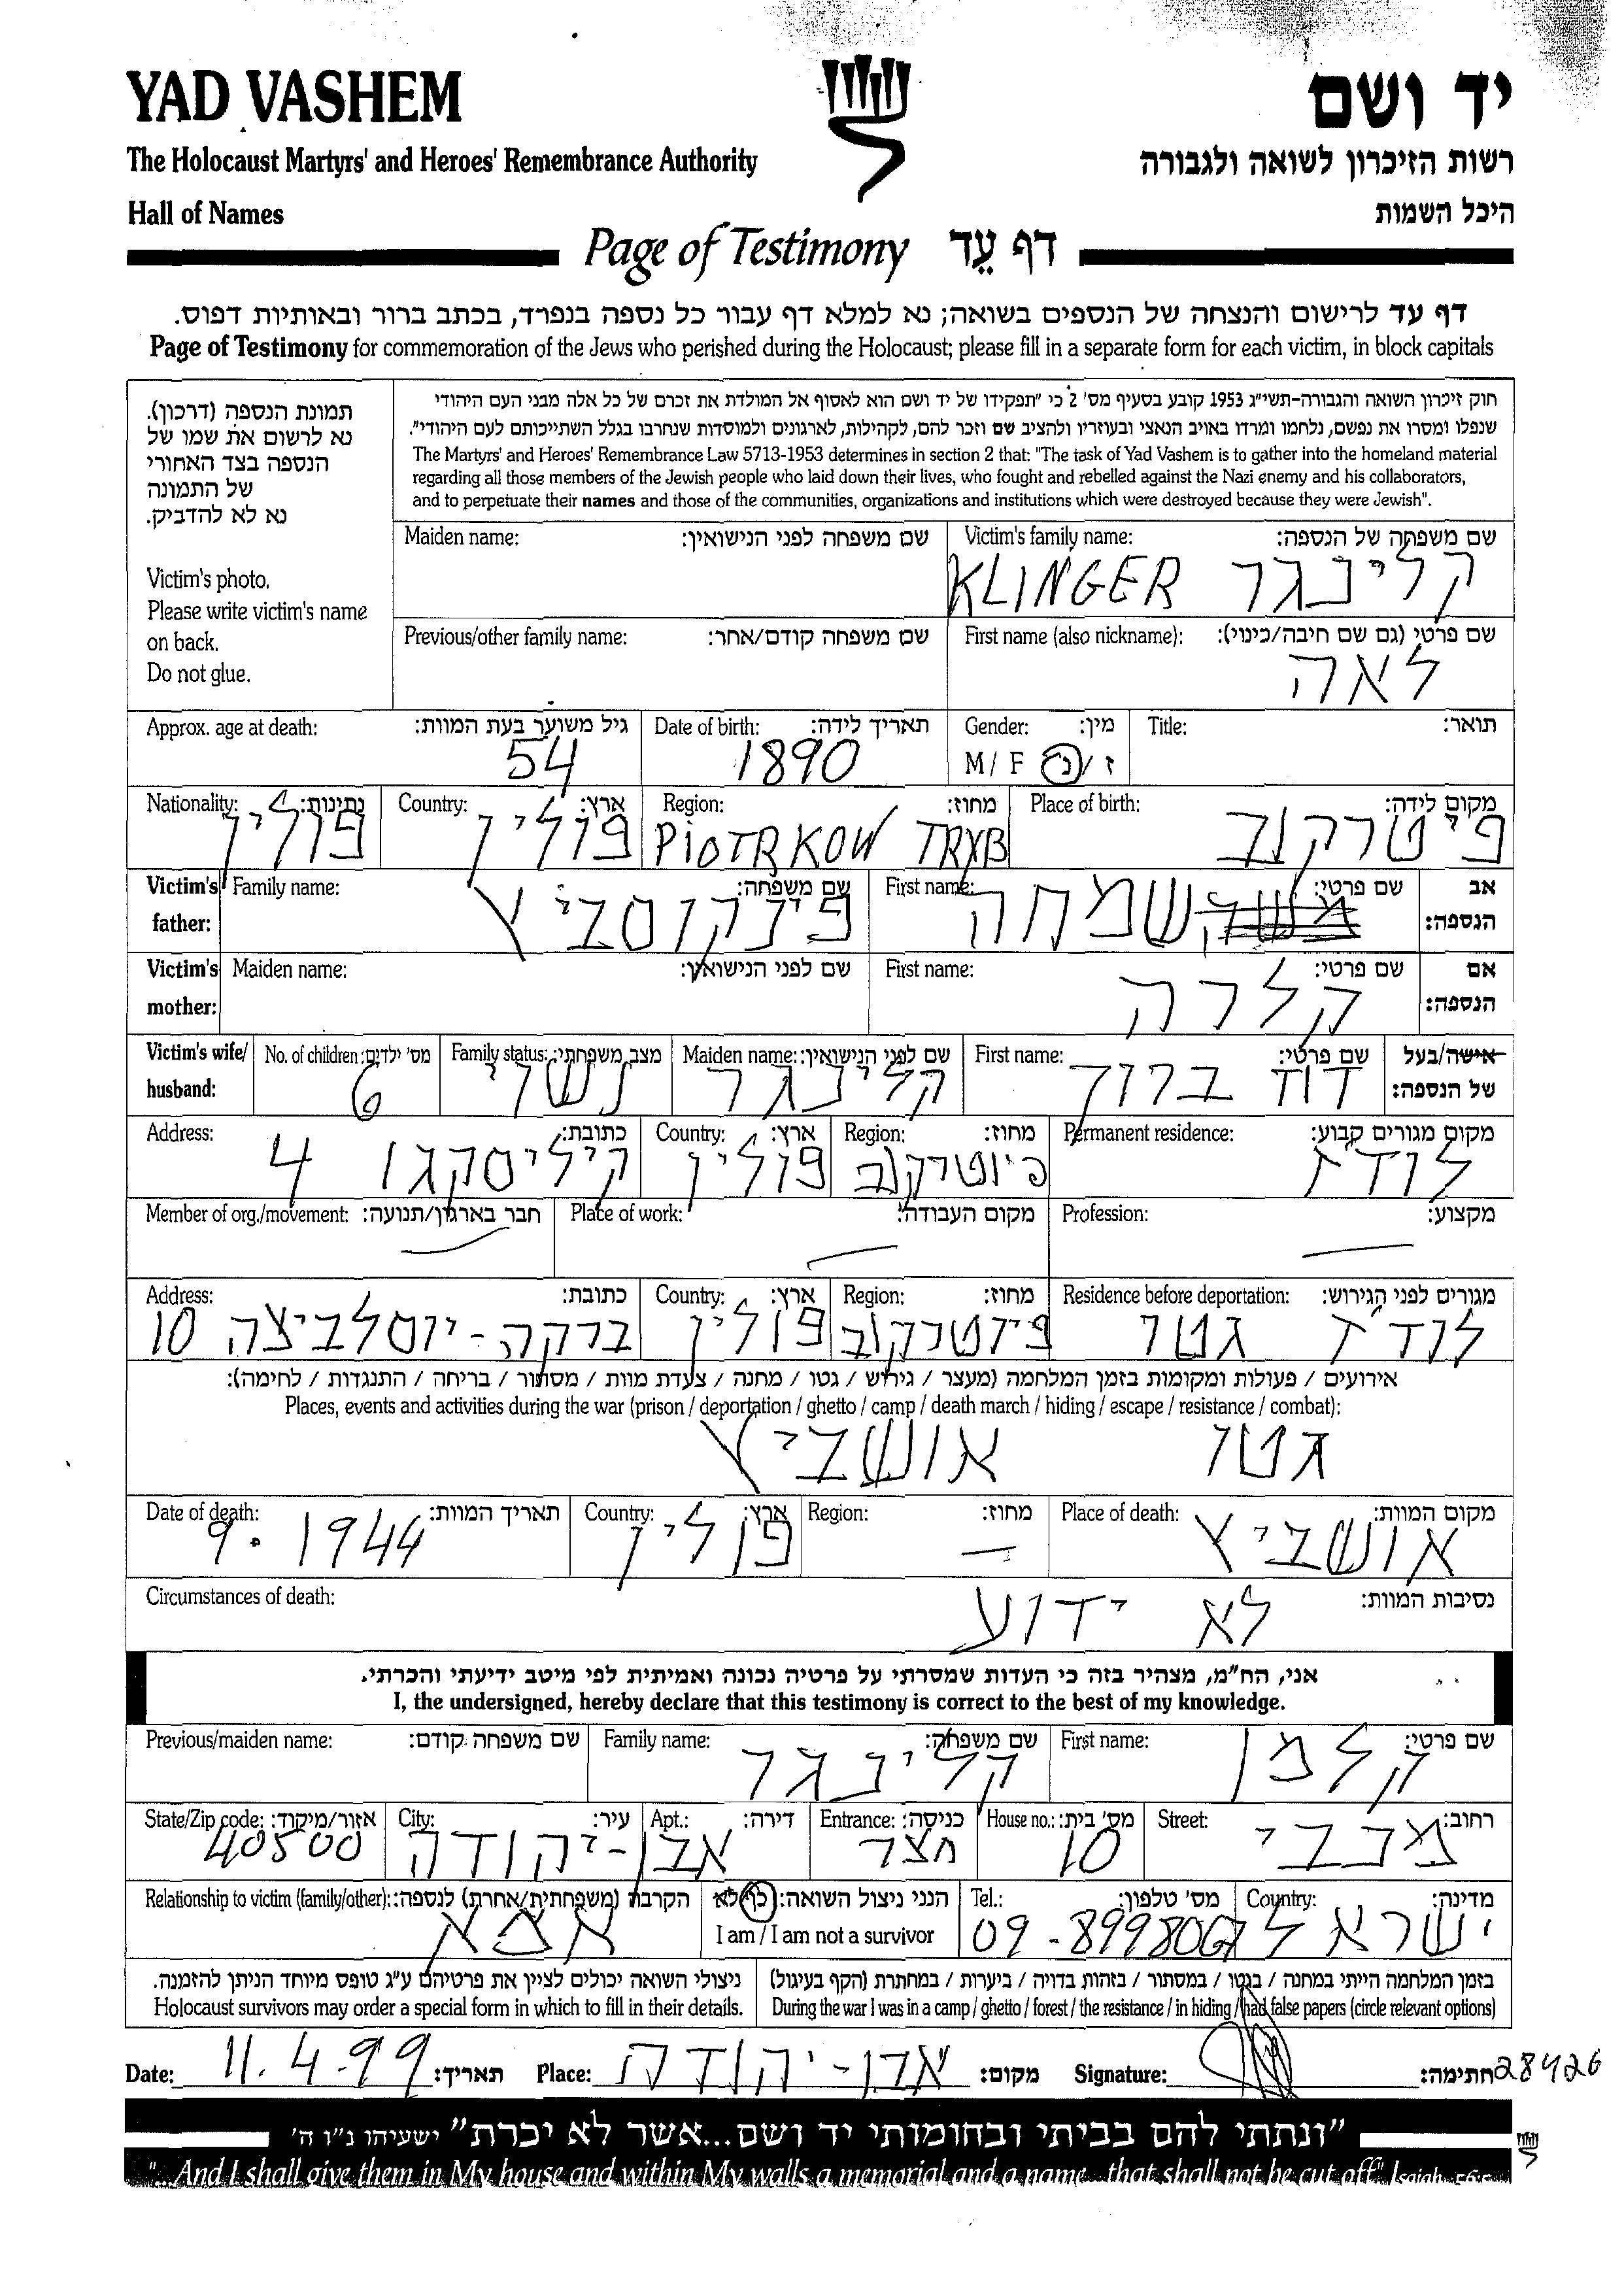 YAD VASHEM
יד ושם
The Holocaust Martyrs' and Heroes' Remembrance Authority
רשות הזיכרון לשואה ולגבורה
Hall of Names
היכל השמות
Page of Testimony דף עֵד
דף עד לרישום והנצחה של הנספים בשואה; נא למלא דף עבור כל נספה בנפרד, בכתב ברור ובאותיות דפוס.
Page of Testimony for commemoration of the Jews who perished during the Holocaust; please fill in a separate form for each victim, in block capitals
תמונת הנספה (דרכון).
נא לרשום את שמו של
הנספה בצד האחורי
של התמונה
נא לא להדביק.
Victim's photo.
Please write victim's name
on back.
Do not glue.
חוק זיכרון השואה והגבורה-תשי"ג 1953 קובע בסעיף מס' 2 כי "תפקידו של יד ושם הוא לאסוף אל המולדת את זכרם של כל אלה מבני העם היהודי
שנפלו ומסרו את נפשם, נלחמו ומרדו באויב הנאצי ובעוזריו ולהציב שם וזכר להם, לקהילות, לארגונים ולמוסדות שנחרבו בגלל השתייכותם לעם היהודי".
The Martyrs' and Heroes' Remembrance Law 5713-1953 determines in section 2 that: "The task of Yad Vashem is to gather into the homeland material
regarding all those members of the Jewish people who laid down their lives, who fought and rebelled against the Nazi enemy and his collaborators,
and to perpetuate their names and those of the communities, organizations and institutions which were destroyed because they were Jewish".
Maiden name: שם משפחה לפני הנישואין: Victim's family name: שם משפחה של הנספה:
KLINGER קלינגר
Previous/other family name: שם משפחה קודם/אחר: First name (also nickname): שם פרטי (גם שם חיבה/כינוי):
לאה
Approx. age at death: גיל משוער בעת המוות: Date of birth: תאריך לידה: Gender: מין: Title: תואר:
54 1890 M / F ז / נ
Nationality: נתינות: Country: ארץ: Region: מחוז: Place of birth: מקום לידה:
פולין פולין PIOTRKOW TRYB פיטרקוב
Victim's father: Family name: שם משפחה: First name: שם פרטי: אב הנספה:
פינקוסביץ שמחה
Victim's mother: Maiden name: שם לפני הנישואין: First name: שם פרטי: אם הנספה:
קלרה
Victim's wife/ husband: No. of children: מס' ילדים: Family status: מצב משפחתי: Maiden name: שם לפני הנישואין: First name: שם פרטי: אישה/בעל של הנספה:
6 נשוי קלינגר דוד ברוך
Address: כתובת: Country: ארץ: Region: מחוז: Permanent residence: מקום מגורים קבוע:
קיליסקגו 4 פולין פיוטרקוב לודז
Member of org./movement: חבר בארגון/תנועה: Place of work: מקום העבודה: Profession: מקצוע:
Address: כתובת: Country: ארץ: Region: מחוז: Residence before deportation: מגורים לפני הגירוש:
ברקה-יוסלביצה 10 פולין פיוטרקוב לודז גטו
אירועים / פעולות ומקומות בזמן המלחמה (מעצר / גירוש / גטו / מחנה / צעדת מוות / מסתור / בריחה / התנגדות / לחימה):
Places, events and activities during the war (prison / deportation / ghetto / camp / death march / hiding / escape / resistance / combat):
גטו אושביץ
Date of death: תאריך המוות: Country: ארץ: Region: מחוז: Place of death: מקום המוות:
9. 1944 פולין — אושביץ
Circumstances of death: נסיבות המוות:
לא ידוע
אני, הח"מ, מצהיר בזה כי העדות שמסרתי על פרטיה נכונה ואמיתית לפי מיטב ידיעתי והכרתי.
I, the undersigned, hereby declare that this testimony is correct to the best of my knowledge.
Previous/maiden name: שם משפחה קודם: Family name: שם משפחה: First name: שם פרטי:
קלינגר קלמן
State/Zip code: אזור/מיקוד: City: עיר: Apt.: דירה: Entrance: כניסה: House no.: מס' בית: Street: רחוב:
40500 אבן-יהודה חצר 10 מכבי
Relationship to victim (family/other): הקרבה (משפחתית/אחרת) לנספה: הנני ניצול השואה: כן/לא Tel.: מס' טלפון: Country: מדינה:
אמא I am / I am not a survivor 09-8998067 ישראל
ניצולי השואה יכולים לציין את פרטיהם ע"ג טופס מיוחד הניתן להזמנה.
Holocaust survivors may order a special form in which to fill in their details.
בזמן המלחמה הייתי במחנה / בגטו / במסתור / בזהות בדויה / ביערות / במחתרת (הקף בעיגול)
During the war I was in a camp / ghetto / forest / the resistance / in hiding / had false papers (circle relevant options)
Date: 11.4.99 תאריך: Place: אבן-יהודה מקום: Signature: חתימה: 28426
"ונתתי להם בביתי ובחומותי יד ושם...אשר לא יכרת" ישעיהו נ"ו ה'
"...And I shall give them in My house and within My walls a memorial and a name...that shall not be cut off" Isaiah 56:5